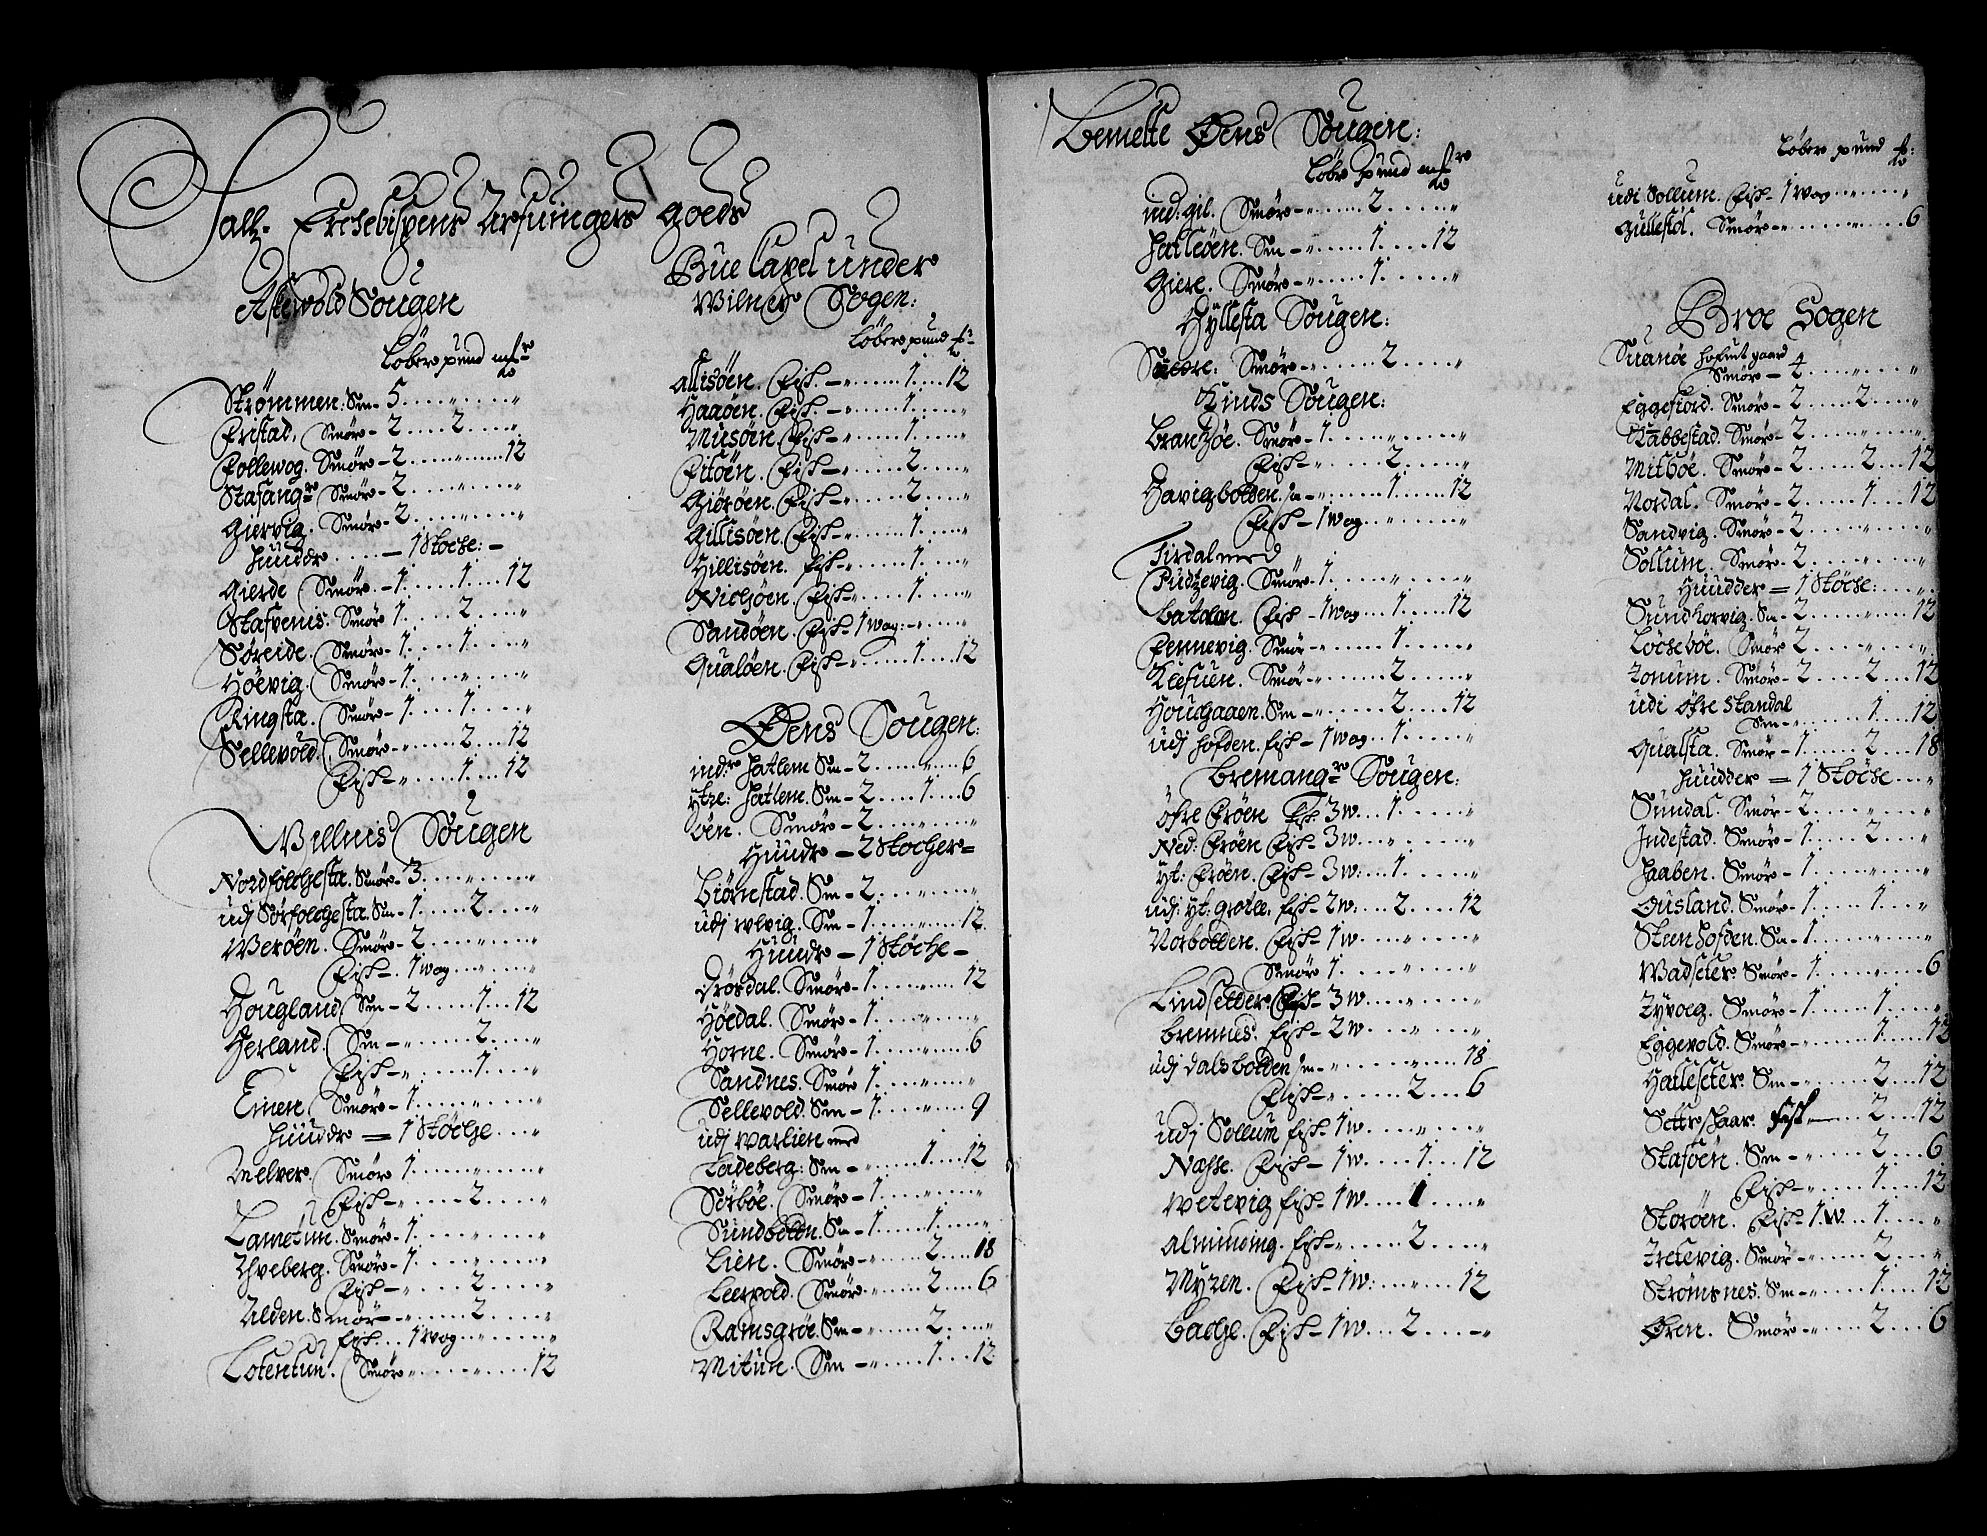 Sallz. Erchebispens Arfuingers goeds
Askewold Sougen
Løber pund mkr
Strømmen. Sm - 5 . . . . „ . . . . „
Fristad. Smør - 2 . . . . 2 . . . . „
Follewog. Smør - 2 . . . . „ . . . . 12
Stafangr Smør - 2 . . . . „ . . . . „
Giervig. Smør - 2 . . . . „ . . . . „
huuder . . . . - 1 Støche: -
Gierde Smør - 1 . . . . 1 . . . . 12
Stafvenis. Smør 1 . . . . 2 . . . . „
Søreide. Smør - 1 . . . . 1 . . . . „
Høevig. Smør - 1 . . . . „ . . . . „
Ringsta. Smør - 1 . . . . 1 . . . . „
Sellevold. Smør - „ . . . . 2 . . . . 12
Fisk - „ . . . . 1 . . . . 12
Willnis Sougen
Nordfolchesta. Smør - 3 . . . . „ . . . . „
udj Sørfolchesta. Sm - 1 . . . . 2 . . . . „
Werøen. Smør - 2 . . . . „ . . . . „
Fisk - 1 wog . . . „ . . . . „
Hougland Sm - 2 . . . . 1 . . . . 12
Herland. Sm - „ . . . . 2 . . . . „
Fisk - „ . . . . 1 . . . . „
Einen Smør - 1 . . . . „ . . . . „
huudr = 1 Støche . . . „
Melver. Smør 1 . . . . „ . . . . „
Fisk - „ . . . . 2 . . . . „
Lametun. Smør - 1 . . . . „ . . . . „
Thveberg. Smør - 1 . . . . „ . . . . „
Fisk - „ . . . . 2 . . . . „
Alden. Smør - „ . . . . 2 . . . . „
Fisk . . 1 wog . . „ . . . . „
Lotentun. Smør „ . . . . „ . . . . 12
Bue Capel under
Wilnes Sogen:
Løber pund
Allisøen. Fisk. - „ . . . . 1 . . . . 12
Haaøen. Fisk. - „ . . . . 1 . . . . „
Musøen. Fisk - „ . . . . 1 . . . . „
Fitøen. Fisk - „ . . . . 2 . . . . „
Giørøen. Fisk - „ . . . . 2 . . . . „
Gillisøen. Fisk - „ . . . . 1 . . . . „
Hillisøen. Fisk - „ . . . . 1 . . . . „
Nichøen. Fisk - „ . . . . 1 . . . . „
Sandøen. Fisk - 1 wog: „ . . . . „
Qualøen. Fisk - „ . . . . 1 . . . . 12
Øens Sougen:
nedr Hatlem Sm - 2 . . . . „ . . . . 6
ytre: Hatlem. Sm - 2 . . . . 1 . . . . 6
Øen. Smør - 2 . . . . „ . . . . „
Huudr - 2 Støcher =
Biørnestad. Sm - 2 . . . . „ . . . . „
udj ulvig. Sm - 1 . . . . „ . . . . 12
Huudr - 1 Støche -
Drøsdal. Smør - 1 . . . . „ . . . . 12
Høedal. Smør - 1 . . . . „ . . . . „
Horne. Smør - 1 . . . . „ . . . . 6
Sandnes. Smør 1 . . . . „ . . . . „
Sellevold. Sm - 1 . . . . „ . . . . 9
udj Warlien med
Ladeberg: Sm - „ . . . . 1 . . . . 12
Sørbøe. Smør - 1 . . . . „ . . . . „
Sundbotten. Sm - 1 . . . . 1 . . . . „
Lien. Smør - „ . . . . 2 . . . . 18
Leervold. Smør - „ . . . . 2 . . . . 6
Ramsgrøe. Sm - „ . . . . 2 . . . . „
Mitun. Sm - „ . . . . 1 . . . . 12
Bemelte Øens Sougen:
Løbr pund mkr
ned: gil. Smør - „ . . . . 2 . . . . „
Hatleøen. Sm - „ . . . . 1 . . . . 12
Giere. Smør - „ . . . . 1 . . . . „
Hyllesta Sougen:
Smør - „ . . . . 2 . . . . „
Kinds Sougen:
Brantzøe. Smør - 1 . . . . „ . . . . „
Fisk - „ . . . . 2 . . . . „
Havigbotten. Sm - „ . . . . 1 . . . . 12
Fisk - 1 wog . . „ . . . . „
Tirdal med
Pudzevig. Smør - 1 . . . . „ . . . . „
Batalen. Fisk - 1 wog . . 1 . . . . 12
Fennevig. Smør - „ . . . . 1 . . . . „
Klefuen. Smør - „ . . . . 2 . . . . „
Hougaaen. Sm - „ . . . . 2 . . . . 12
udj hofden. Fisk - 1 wog . . 1 . . . . „
Bremangr Sougen:
Øfre Frøen Fisk 3 w . . . 1 . . . . „
Ned: Frøen Fisk - 3 w . . . „ . . . . „
Yt: Frøen. Fisk - 3 w: . . . 1 . . . . „
udj: yt. grotle. Fisk - 2 w: . . . 2 . . . . 12
Norbotten. Fisk - 1 w . . . „ . . . . „
Smør 1 . . . . „ . . . . „
Lindsetder Fisk - 3 w . . . „ . . . . „
Bremnes. Fisk - 2 w . . . „ . . . . „
udj Dalsbotten Sm - „ . . . . „ . . . . 18
Fisk - „ . . . . 2 . . . . 6
udj Sollum Fisk - 1 w . . . „ . . . . „
Næsse. Fisk - 1 w . . . 1 . . . . 12
Wetevig Fisk - 1 w . . . 1 . . . . „
Alminding. Fisk - „ . . . . 2 . . . . „
Myren. Fisk - 1 w: . . . „ . . . . 12
Bache. Fisk - 1 w . . . 2 . . . . „
Løber pund
udi Sollum. Fisk - 1 wog . . „ . . . . „
Gullestøl. Smør - „ . . . . „ . . . . 6
Broe Sogen
Suanøe Hofuit gaard
Smør - 4 . . . . „ . . . . „
Eggefiord. Smør - 2 . . . . 2 . . . . „
Stabbestad. Smør - 2 . . . . „ . . . . „
Mitbøe. Smør - 2 . . . . 2 . . . . 12
Nordal. Smør - 2 . . . . 1 . . . . 12
Sandvig. Smør - 2 . . . . „ . . . . „
Sollum. Smør - 2 . . . . „ . . . . „
Huudder = 1 Støche: . . . „
Sundhorvig. Sm - 2 . . . . „ . . . . 12
Løchebøe. Smør 2 . . . . „ . . . . „
Tonum. Smør - 2 . . . . 2 . . . . 12
udi Øfre Standal
Sm - „ . . . . 1 . . . . 12
Qualsta. Smør - 1 . . . . 2 . . . . 18
huudder = 1 Støche . . . „
Sundal. Smør - 2 . . . . „ . . . . „
Indestad. Smør - 1 . . . . 2 . . . . „
Haaben. Smør - 1 . . . . „ . . . . „
Ousland. Smør - 1 . . . . 1 . . . . „
Steenhofden. Sm - 1 . . . . „ . . . . „
Wadseter Smør - 1 . . . . „ . . . . 6
Tyvoeg. Smør - 1 . . . . 1 . . . . „
Eggevold. Smør - „ . . . . 1 . . . . 12
Halleseter. Sm - „ . . . . 2 . . . . 12
Settreschaar. Fisk - „ . . . . 2 . . . . 12
Staføen. Sm - „ . . . . 2 . . . . 6
Fisk - „ . . . . 1 . . . . 12
Storøen. Fisk - 1 w . . . 1 . . . . „
Tretevig. Smør - „ . . . . 2 . . . . „
Strømsnes. Sm - „ . . . . 1 . . . . 12
Øren. Smør - „ . . . . 2 . . . . 6